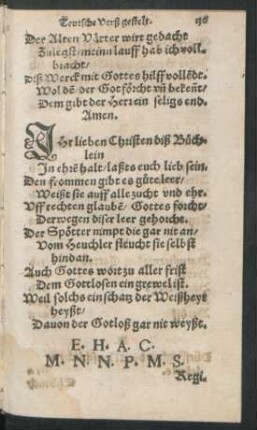 Teutsche Verß gestelt. 196
Der Alten Vätter wirt gedacht
Zulegst/meinn lauff hab ich voll⸗
bracht/
Diß Werck mit Gottes hilff vollēdt.
Wol dē der Got förcht vñ bekeñt/
Dem gibt der Herr ein seligs end.
Amen.
IHr lieben Christen diß Büch⸗
lein
In ehrē halt/laßts euch lieb sein.
Den frommen gibt es gūte leer/
Weißt sie auff alle zucht vnd ehr.
Vff rechten glaubē/ Gottes forcht/
Derwegen diser leer gehorcht.
Der Spötter nimpt die gar nit an/
Vom Heuchler fleucht sie selbst
hindan.
Auch Gottes wort zu aller frist
Dem Gottlosen ein grewel ist.
Weil solchs ein schatz der Weißheyt
heyßt/
Dauon der Gotloß gar nit weyßt.
E. H. A. C.
M. N. N. P. M. S.
Regi.